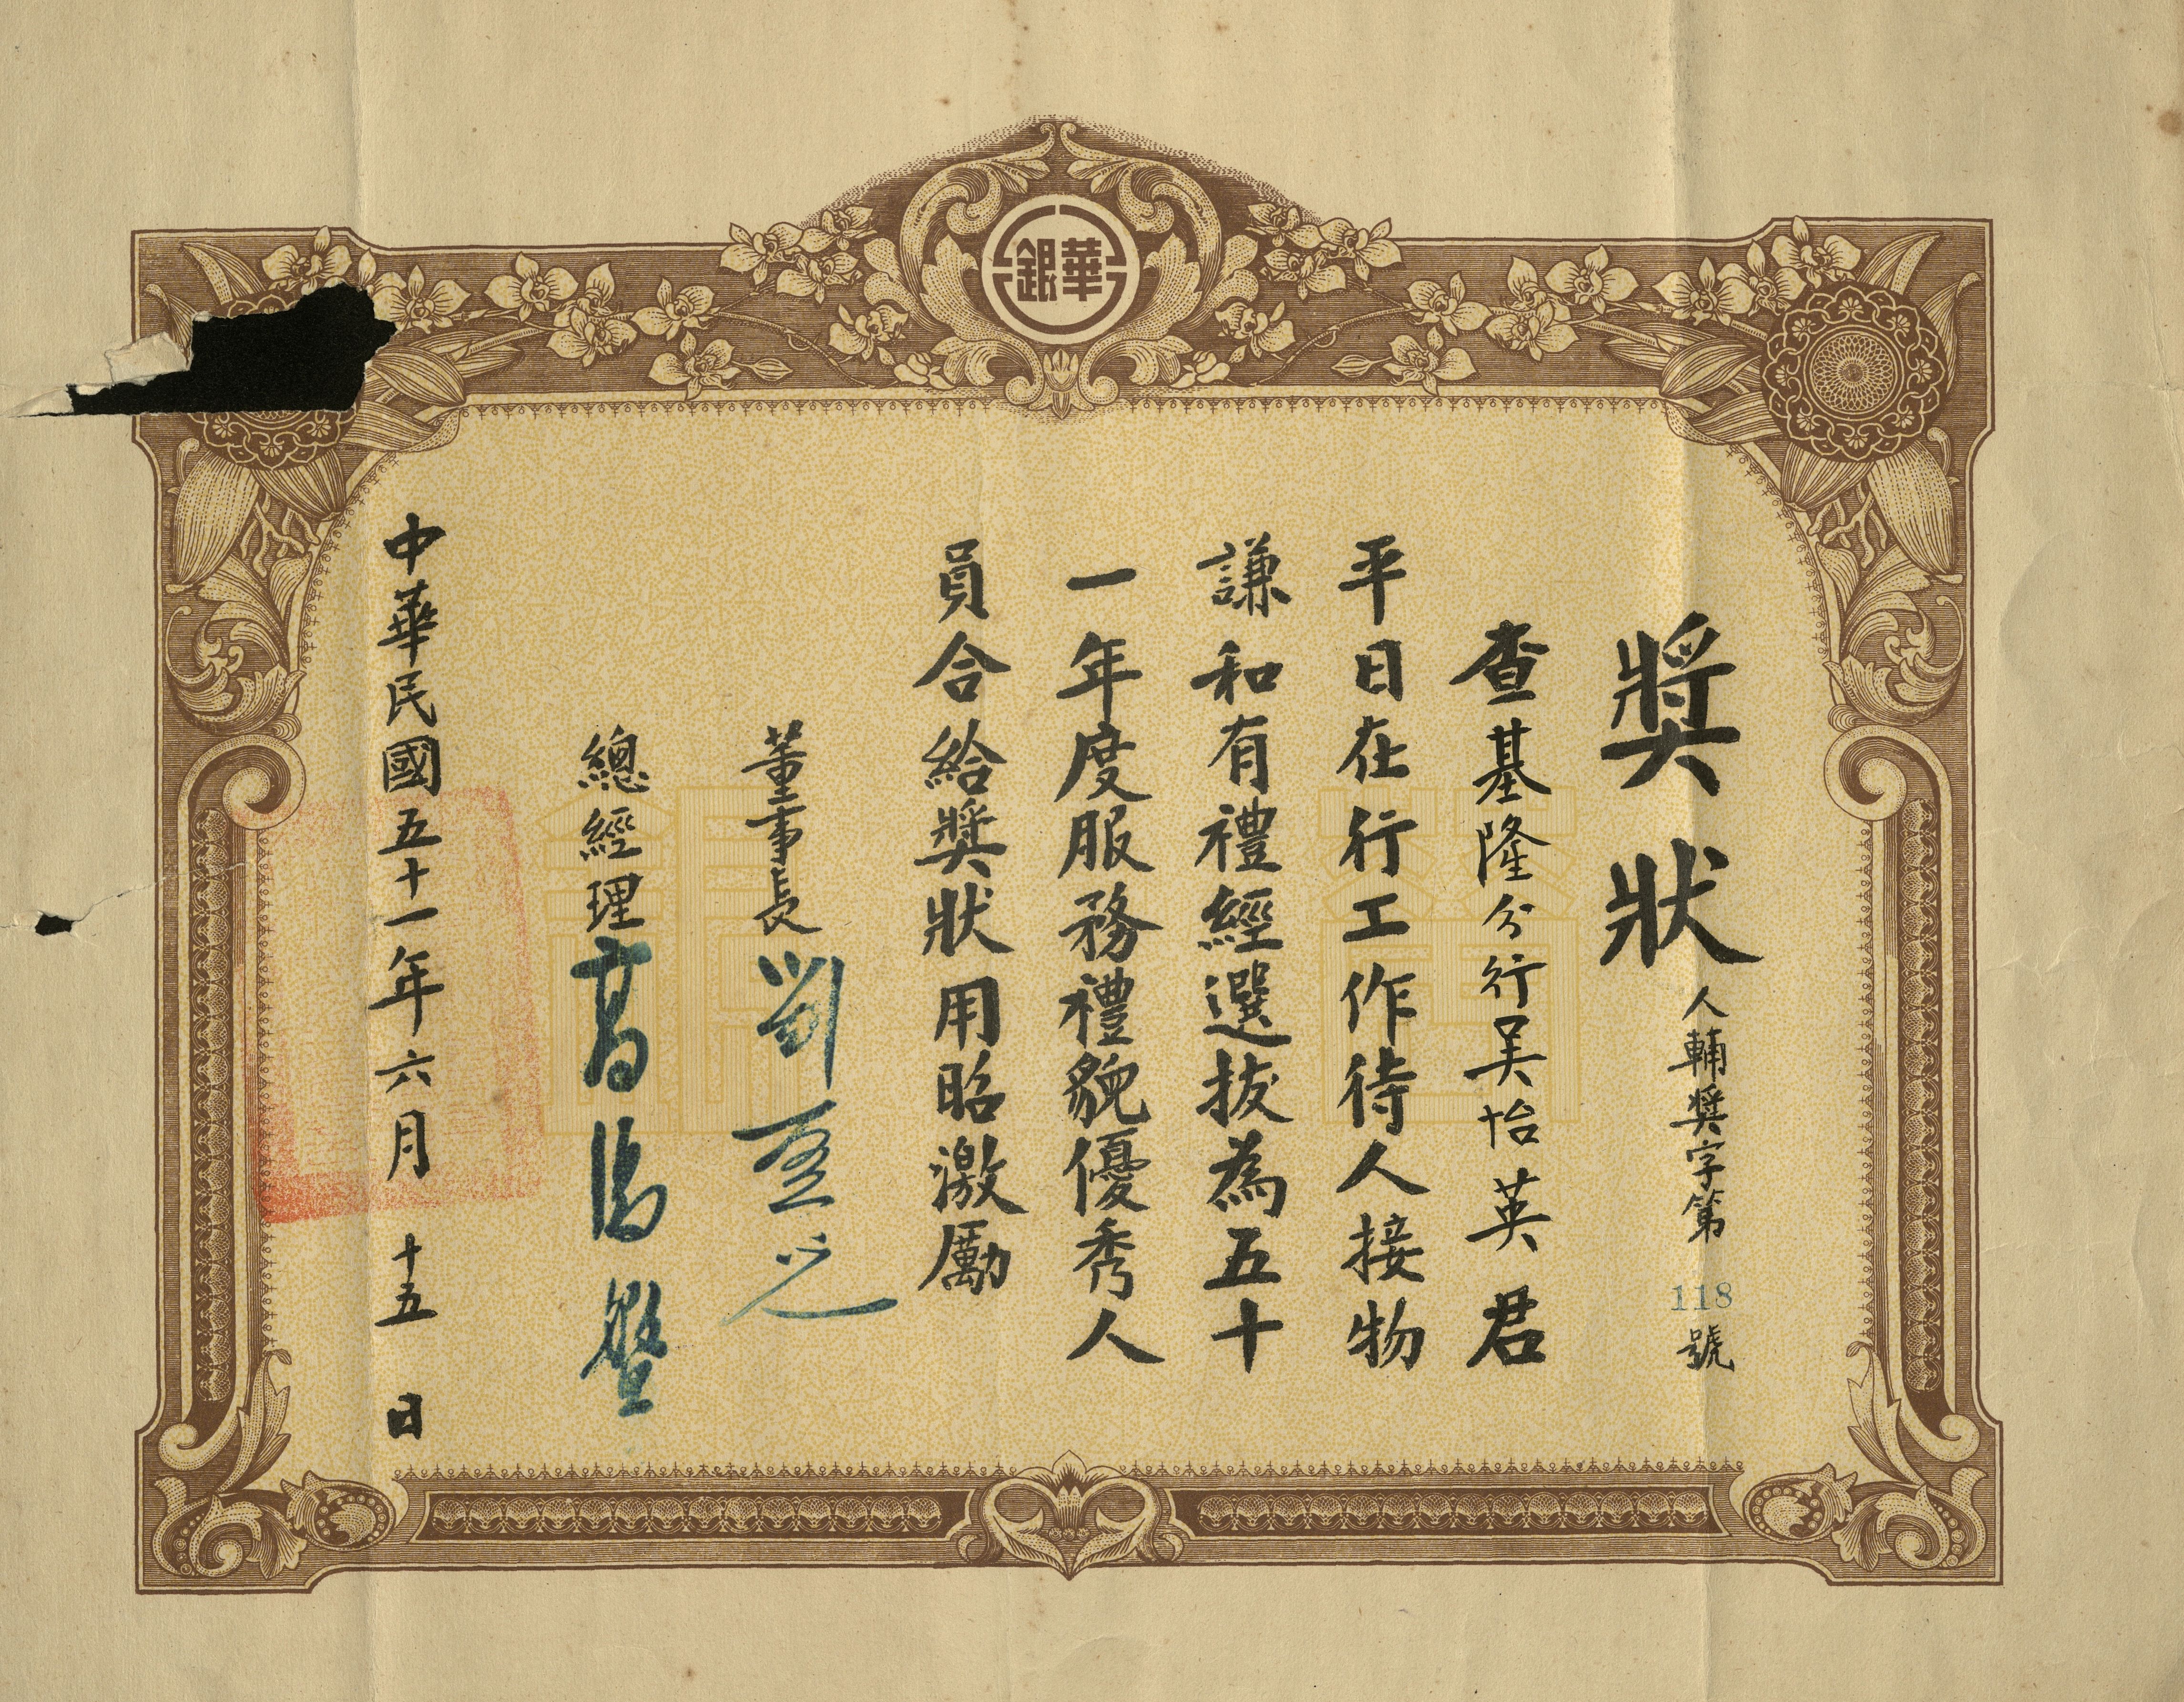 華銀
獎狀
人輔獎字第118號
查基隆分行吴怡英君
平日在行工作待人接物
謙和有禮經選拔為五十
一年度服務禮貌優秀人
員合給獎狀用昭激勵
董事長 劉啓光
總經理 高湯盤
中華民國五十一年六月十五日